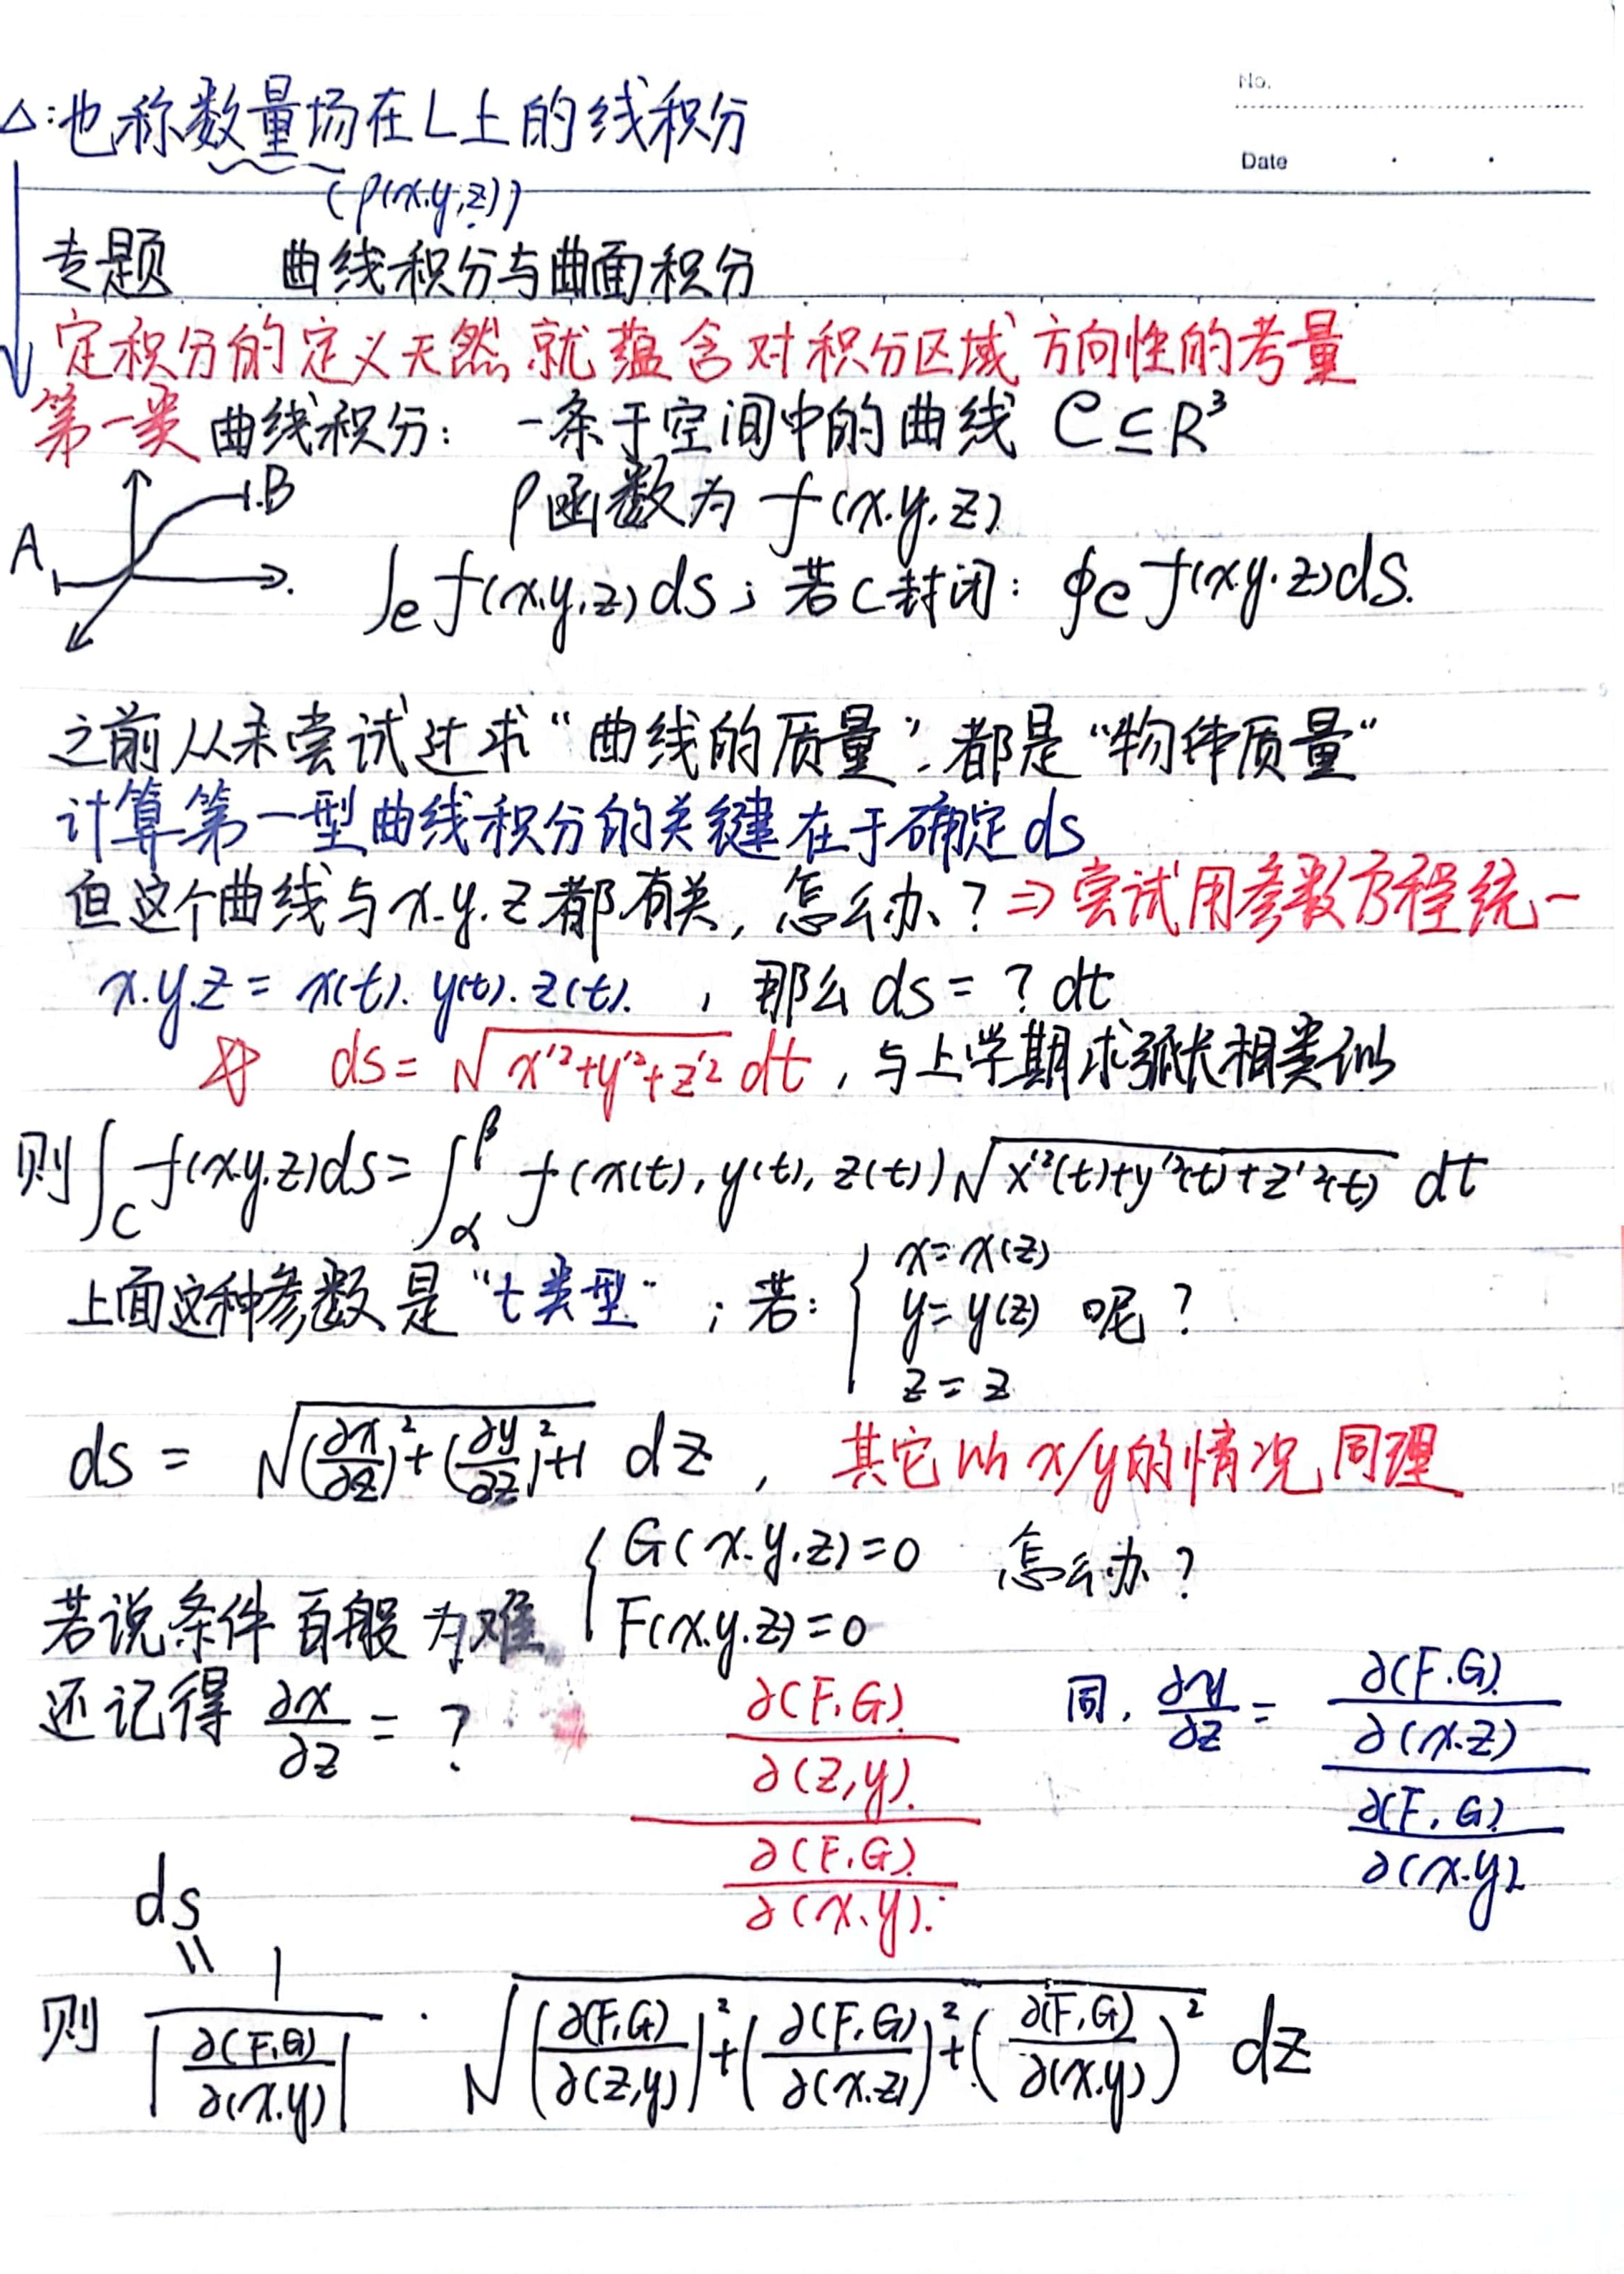 No.
Δ:也称数量场在L上的线积分
Date
(ρ(x.y,z))
专题 曲线积分与曲面积分
定积分的定义天然就蕴含对积分区域方向性的考量
第一类曲线积分: 一条于空间中的曲线 C⊆R³
ρ函数为 f(x.y.z)
A B
∫_C f(x,y,z)ds; 若C封闭: ∮_C f(x.y.z)ds.
之前从未尝试过求“曲线的质量”,都是“物体质量”
计算第一型曲线积分的关键在于确定ds
但这个曲线与x.y.z都有关,怎么办?⇒尝试用参数方程统一
x.y.z = x(t). y(t). z(t). , 那么 ds = ? dt
ds = √(x'²+y'²+z'²) dt , 与上学期求弧长相类似
则∫_C f(x.y.z)ds = ∫_α^β f(x(t), y(t), z(t))√(x'²(t)+y'²(t)+z'²(t)) dt
上面这种参数是“t类型” ; 若: { x=x(z)
y=y(z) 呢?
z=z
ds = √((∂x/∂z)²+(∂y/∂z)²+1) dz , 其它以x/y的情况同理
若说条件百般为难 { G(x.y.z)=0 怎么办?
F(x.y.z)=0
还记得 ∂x/∂z = ? (∂(F,G)/∂(z,y)) / (∂(F,G)/∂(x,y)) 同. ∂y/∂z = (∂(F.G)/∂(x.z)) / (∂(F,G)/∂(x.y))
ds
=
则 1/|∂(F,G)/∂(x.y)| · √((∂(F,G)/∂(z,y))²+(∂(F,G)/∂(x.z))²+(∂(F,G)/∂(x.y))²) dz